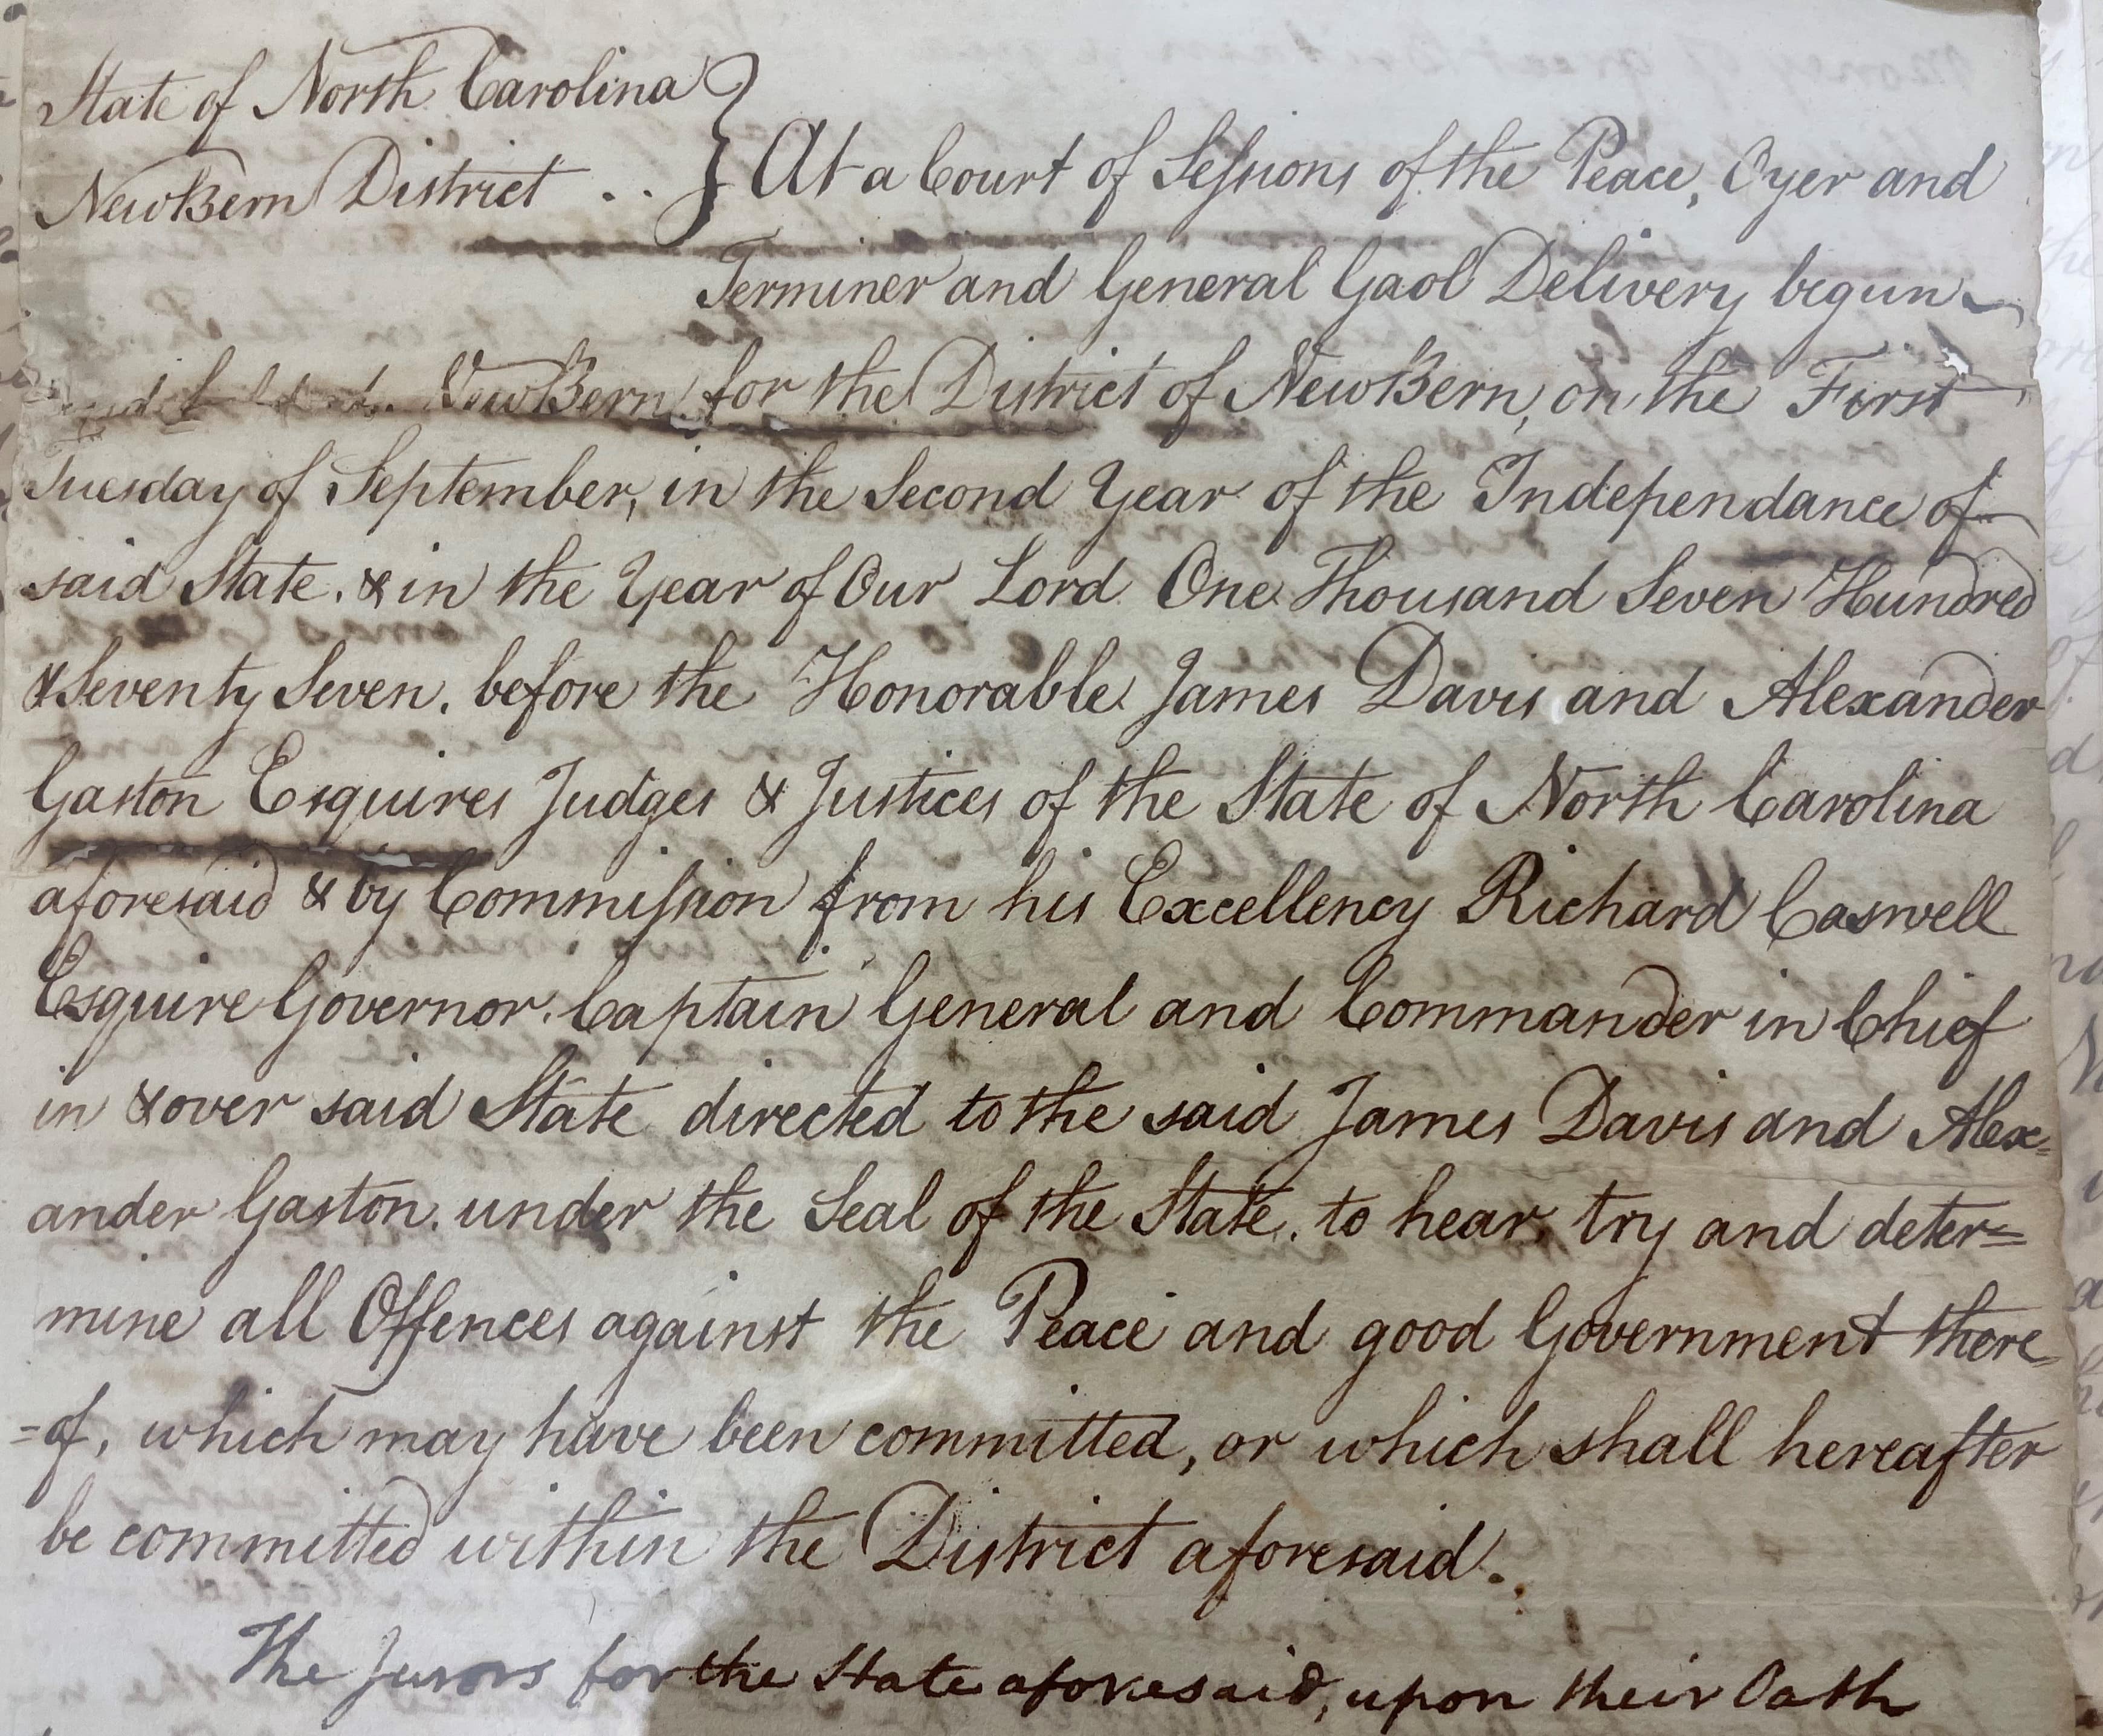 State of North Carolina
NewBern District . . } At a Court of Sessions of the Peace, Oyer and
Terminer and General Gaol Delivery begun
NewBern for the District of NewBern, on the First
Tuesday of September, in the Second Year of the Independance of
said State. & in the Year of Our Lord One Thousand Seven Hundred
& Seventy Seven. before the Honorable James Davis and Alexander
Gaston Esquires Judges & Justices of the State of North Carolina
aforesaid & by Commission from his Excellency Richard Caswell
Esquire Governor. Captain General and Commander in Chief
in & over said State directed to the said James Davis and Alex=
ander Gaston. under the Seal of the State. to hear, try and deter=
mine all Offences against the Peace and good Government there=
=of, which may have been committed, or which shall hereafter
be committed within the District aforesaid.
The Jurors for the State aforesaid, upon their Oath